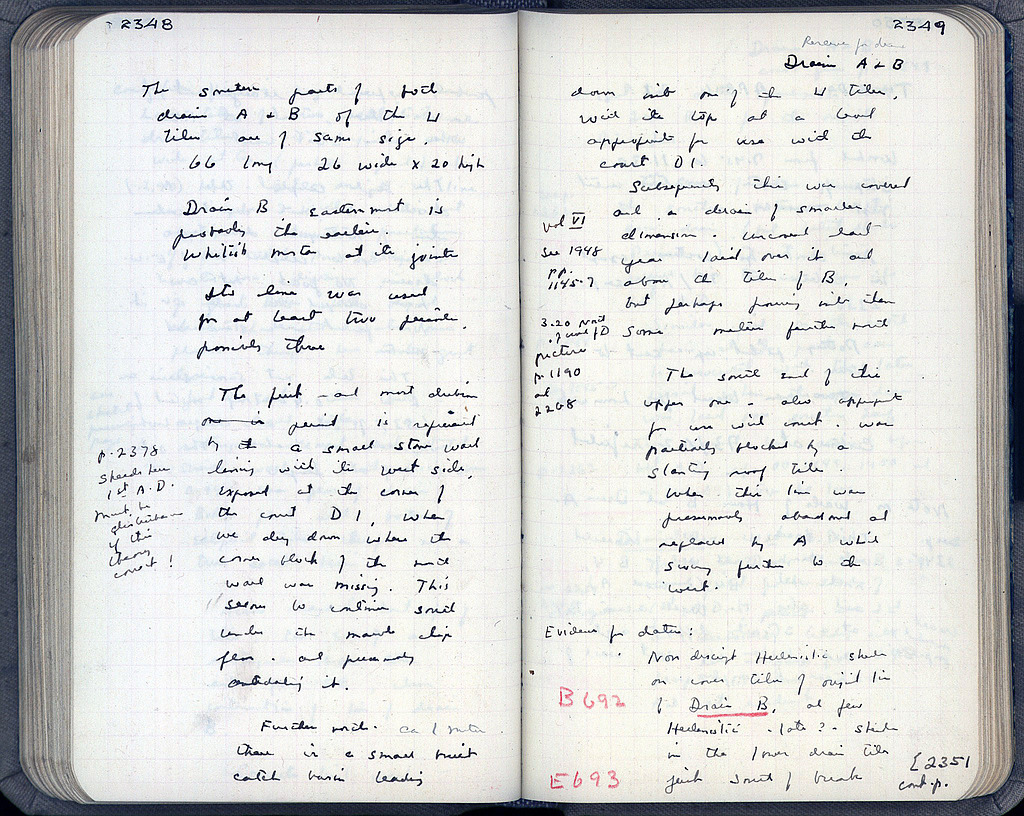 2348
The southern parts of both
drains A & B of the U
tiles are of same size.
66 long 26 wide x 20 high
Drain B, easternmost is
probably the earlier.
Whitish mortar at its joints
Its line was used
for at least two periods,
possibly three
The first - and most dubious
one is period is represented
by the a small stone wall
lining with its west side,
exposed at the corner of
the court D1, when
we dug down where the
corner block of the north
wall was missing. This
seems to continue south
under the marble chip
floor. and presumably
antedating it.
p. 2378
sherds here
1st A.D.
Must be
disturbance
if this
theory
correct!
Further north. ca 1 meter
there is a small brick
catch basin leading
2349
Drain A & B
down into one of the U tiles,
with its top at a level
appropriate for use with the
court D1.
Subsequently this was covered
and a drain of smaller
dimension. uncovered last
year laid over it and
above the tiles of B,
but perhaps flowing into them
some meters further north
vol VI
See 1948
pp.
1145-7
3.20 north
of wall of D
picture
p. 1190
and
2268
The south end of this
upper one - also appropriate
for use with court. was
partially blocked by a
slanting roof tile.
When this line was
presumably abandoned and
replaced by A which
swung further to the
west.
Evidence for dates:
Non descript Hellenistic sherds
on cover tiles of original line
B692
of Drain B, and few
Hellenistic - late? - sherds
in the lower drain tile
E693
just South of break
{2351
cont. p.